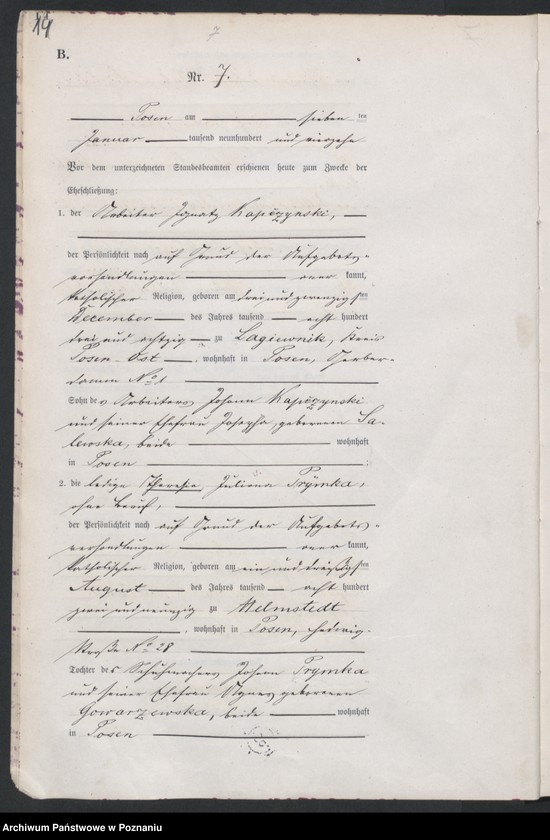 14
7
B.
Nr. 7.
Posen am sieben ten
Januar tausend neunhundert und vierzehn
Vor dem unterzeichneten Standesbeamten erschienen heute zum Zwecke der
Eheschließung:
1. der Arbeiter Ignatz Kapczynski,
der Persönlichkeit nach auf Grund der Aufgebots-
verhandlungen aner kannt,
katholischer Religion, geboren am drei und zwanzigsten
December des Jahres tausend acht hundert
drei und achtzig zu Lagiewnik, Kreis
Posen-Ost, wohnhaft in Posen, Gerber-
damm No 1
Sohn des Arbeiters Johann Kapczynski
und seiner Ehefrau Josepha, geborenen Sa-
lewska, beide wohnhaft
in Posen ;
2. die ledige Theresia Juliana Prymka,
ohne Beruf,
der Persönlichkeit nach auf Grund der Aufgebots-
verhandlungen aner kannt,
katholischer Religion, geboren am ein und dreißigsten
August des Jahres tausend acht hundert
zwei und neunzig zu Helmstedt
, wohnhaft in Posen, Hedwig-
straße No 28
Tochter des Schuhmachers Johann Prymka
und seiner Ehefrau Agnes geborenen
Gowarzewska, beide wohnhaft
in Posen
Archiwum Państwowe w Poznaniu